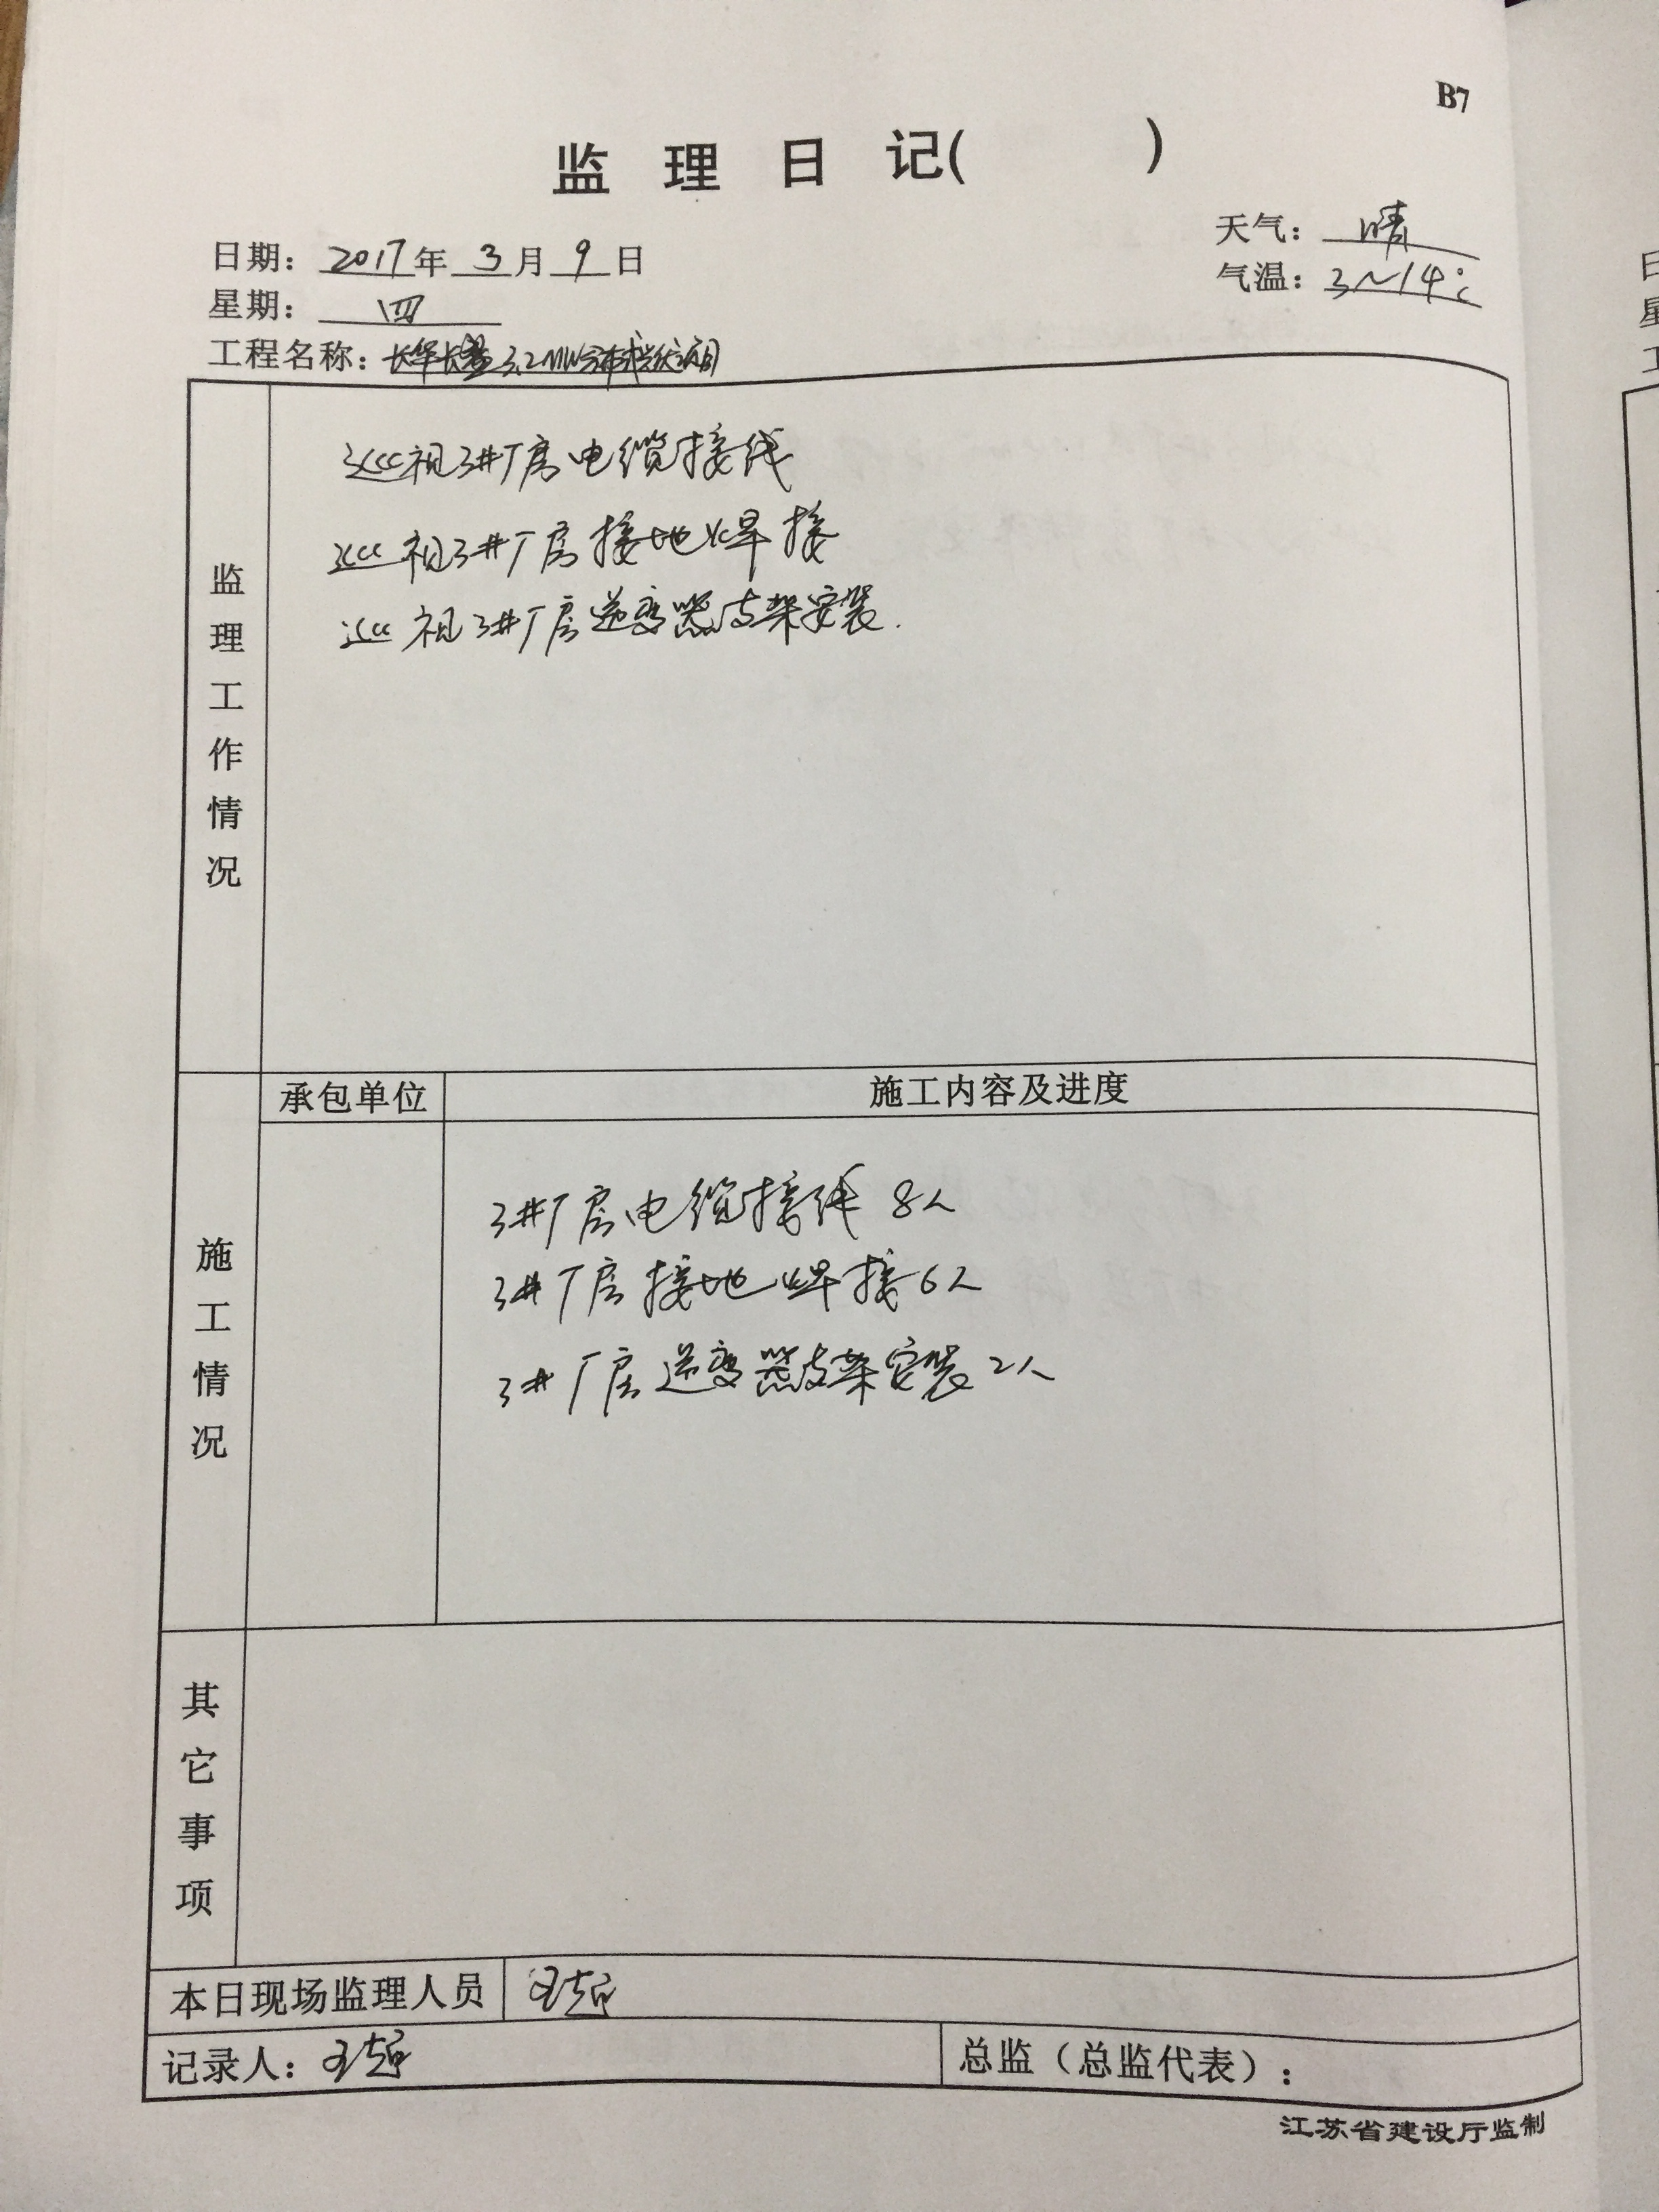 B7
监 理 日 记( )
日期: 2017年 3 月 9 日
天气: 晴
星期: 四
气温: 3~14℃
工程名称: 长华长盛3.2MW分布式光伏项目
监理工作情况
巡视3#厂房电缆接线
巡视3#厂房接地焊接
巡视3#厂房逆变器支架安装.
承包单位 施工内容及进度
施工情况
3#厂房电缆接线 8人
3#厂房接地焊接6人
3#厂房逆变器支架安装2人
其它事项
本日现场监理人员 王超
记录人: 王超 总监(总监代表):
江苏省建设厅监制